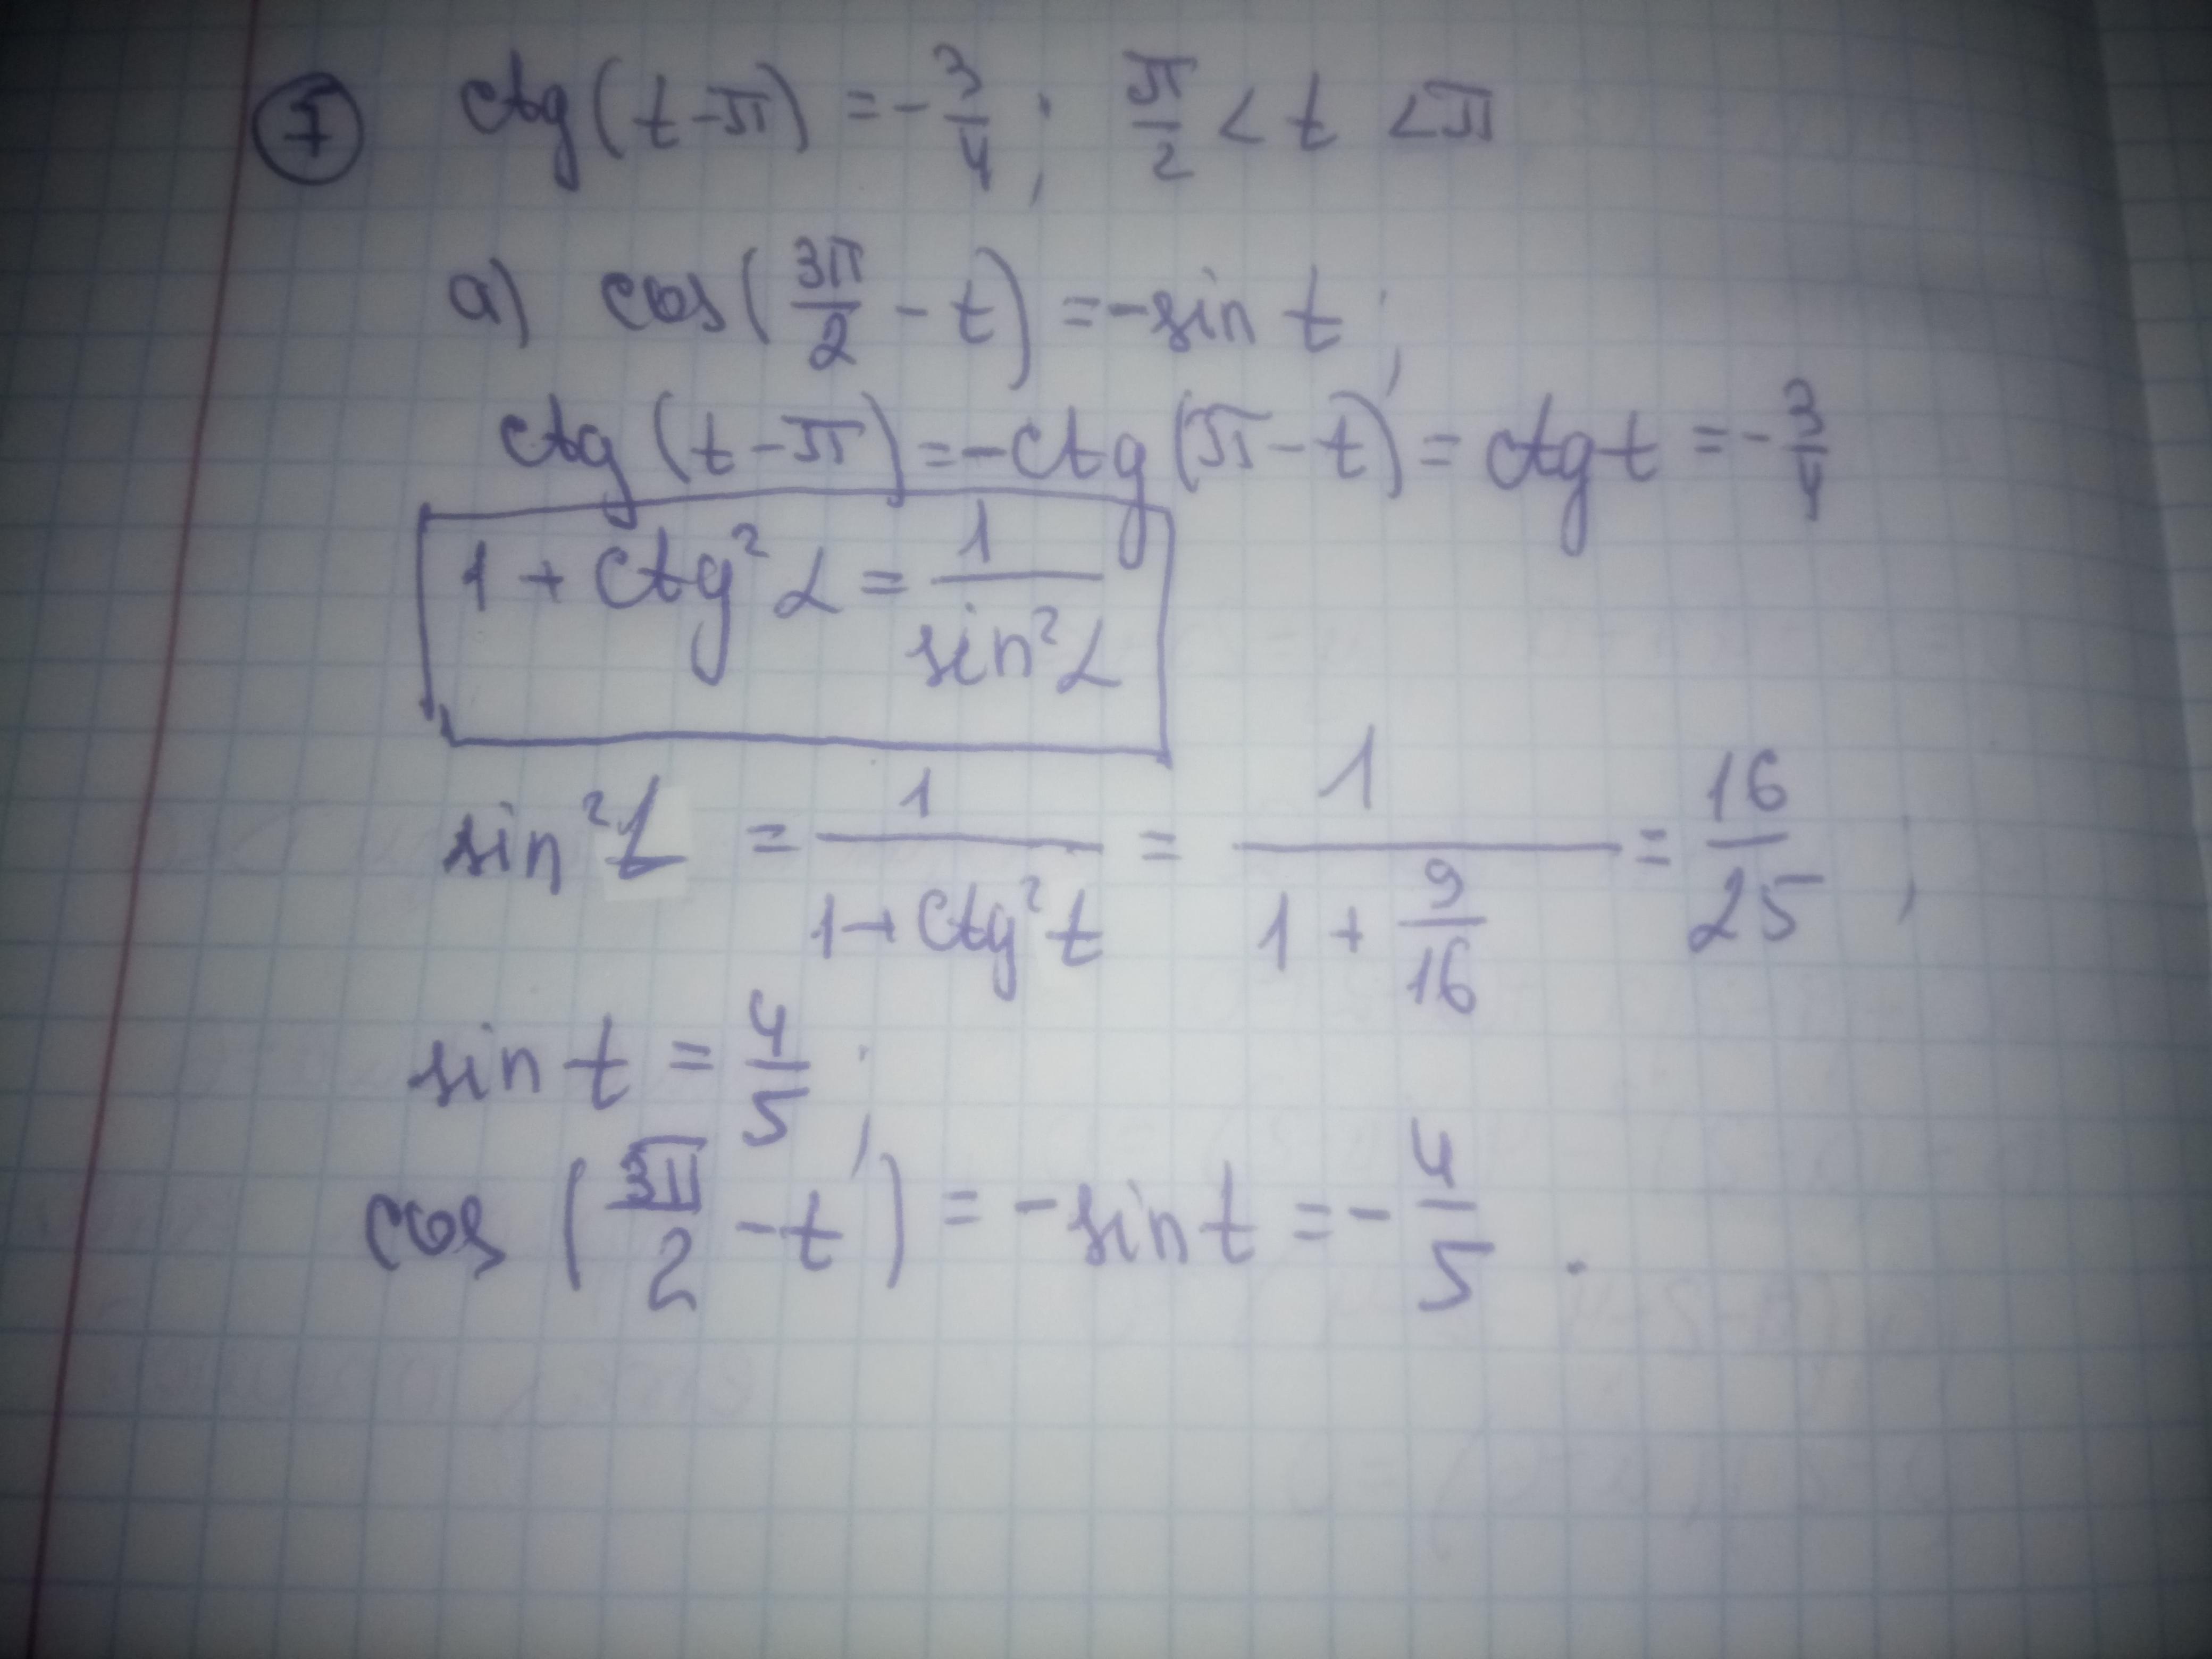 7 ctg(t-π) = -3/4; π/2 < t < π
а) cos(3π/2 - t) = -sin t;
ctg(t-π) = -ctg(π-t) = ctg t = -3/4
1 + ctg²α = 1/sin²α
sin²t = 1/(1+ctg²t) = 1/(1 + 9/16) = 16/25;
sin t = 4/5;
cos(3π/2 - t) = -sin t = -4/5.